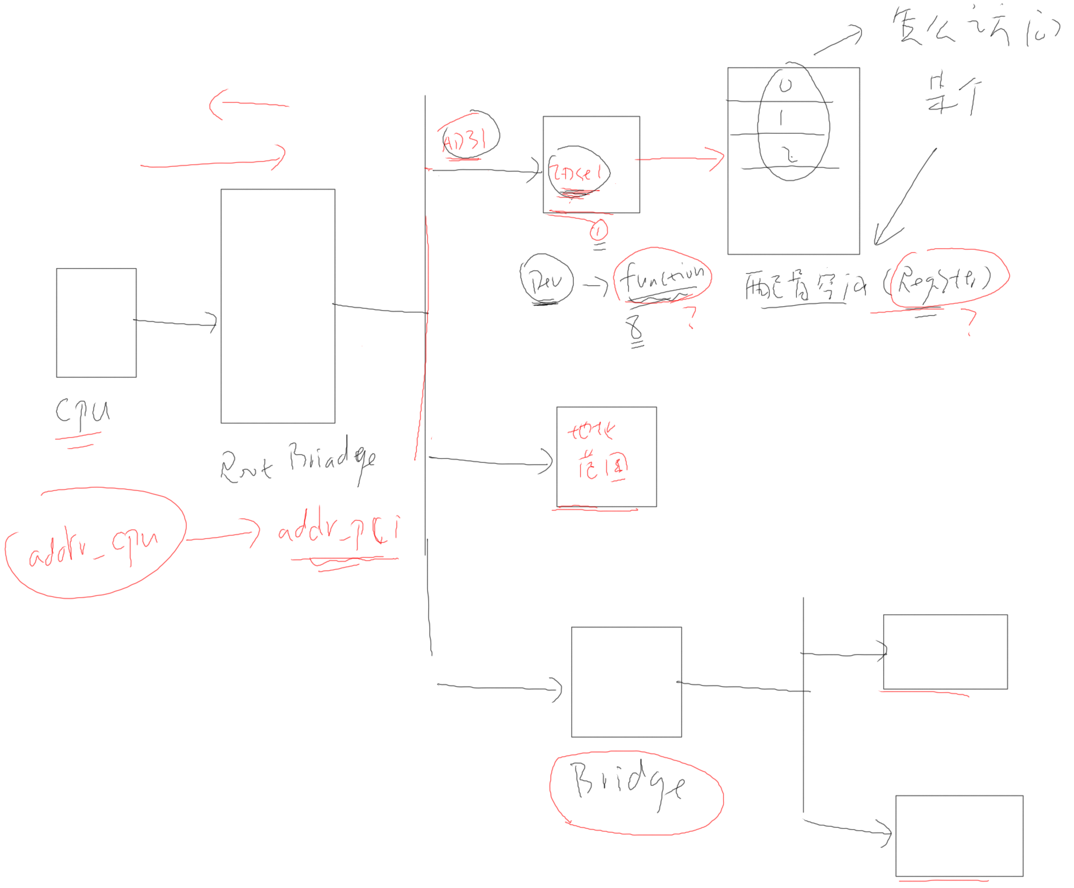 怎么访问
某个
0
1
2
AD31
IDSel
①
Dev
function
8
?
配置空间 (Register)
?
CPU
Root Briadge
addr_cpu
addr_pci
地址
范围
Bridge